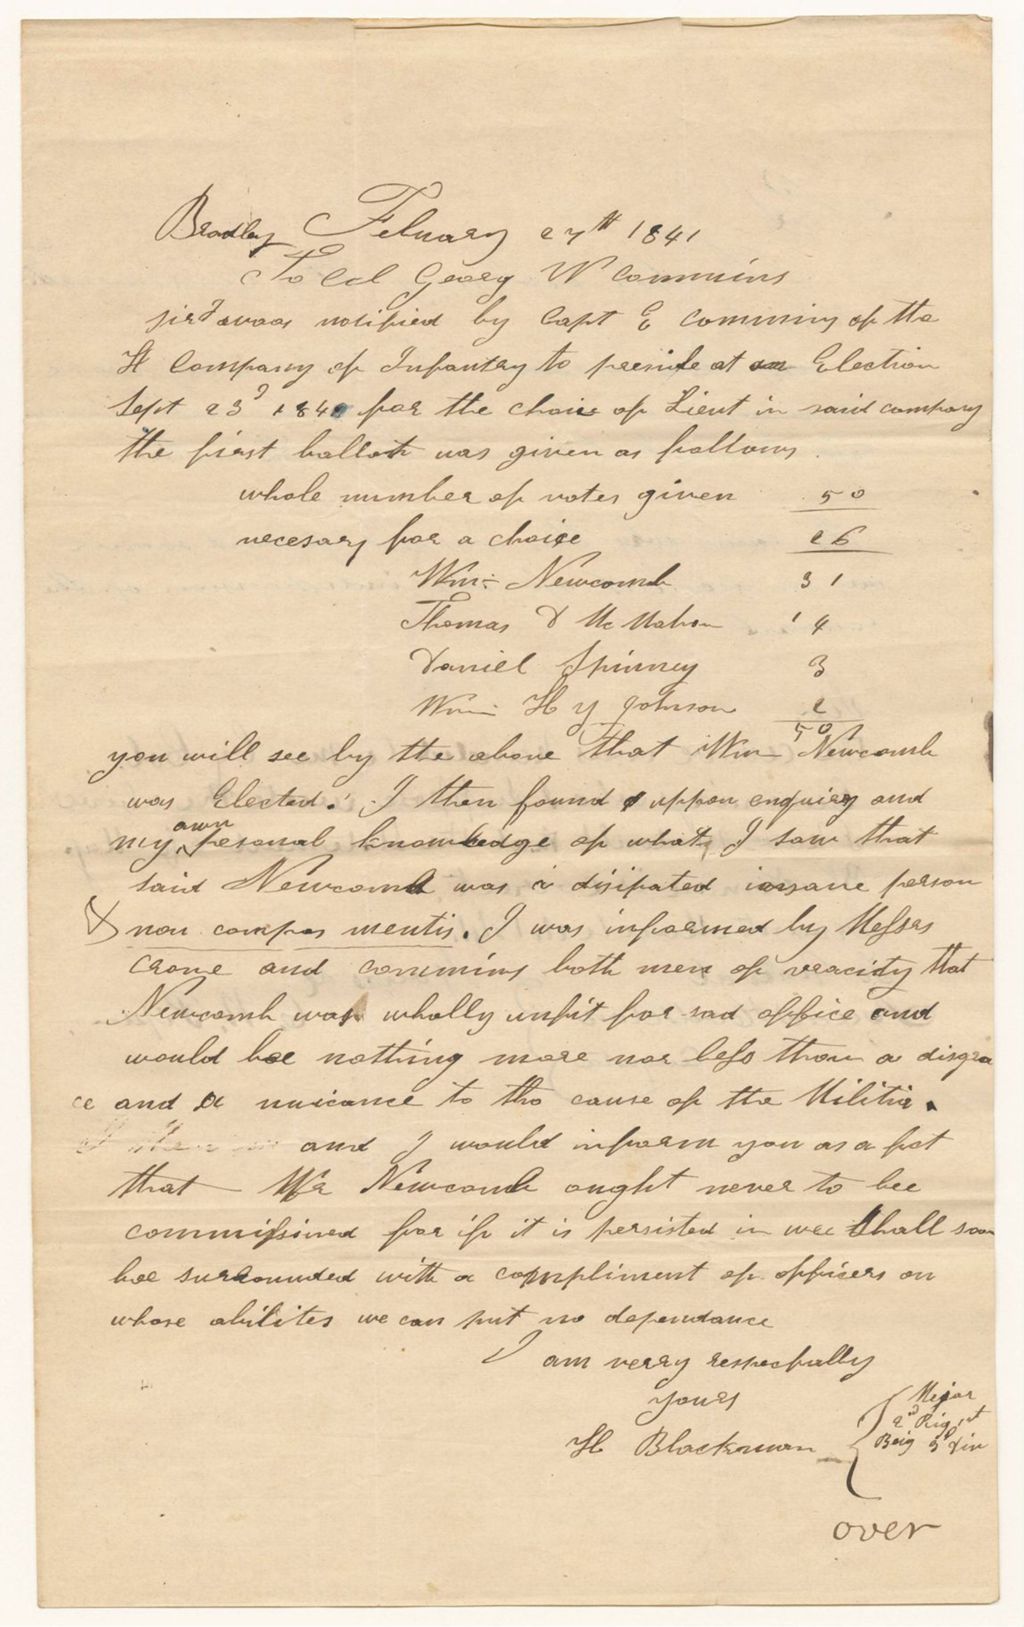 Bradley Febuary 27th 1841
To Col Georg W Cummins
sir I was notified by Capt E Comming of the
H Company of Infantry to preside at an Election
Sept 23d 1840 for the choice of Lieut in said company
the first ballot was given as follows.
whole number of votes given 50
necesary for a choice 26
Wm Newcomb 31
Thomas D McMahon 14
Daniel Spinney 3
Wm H Y Johnson 2
50
you will see by the above that Wm Newcomb
was Elected. I then found uppon enquiery and
my own pesonal knowledge of what I saw that
said Newcomb was a disipated insane person
& non compos mentis. I was informed by Messrs
Crane and Comming both men of veracity that
Newcomb was wholly unfit for sad office and
would bee nothing more nor less than a disgra
ce and a nuicance to the cause of the Militia.
and I would inform you as a fact
that Mr Newcomb ought never to bee
commissined for if it is persisted in wee shall soon
bee surrounded with a compliment of officers on
whose abilites we can put no dependance
I am verry respectfully
yours
H Blackman
Major
2nd Rig
Brig 3d Div
over